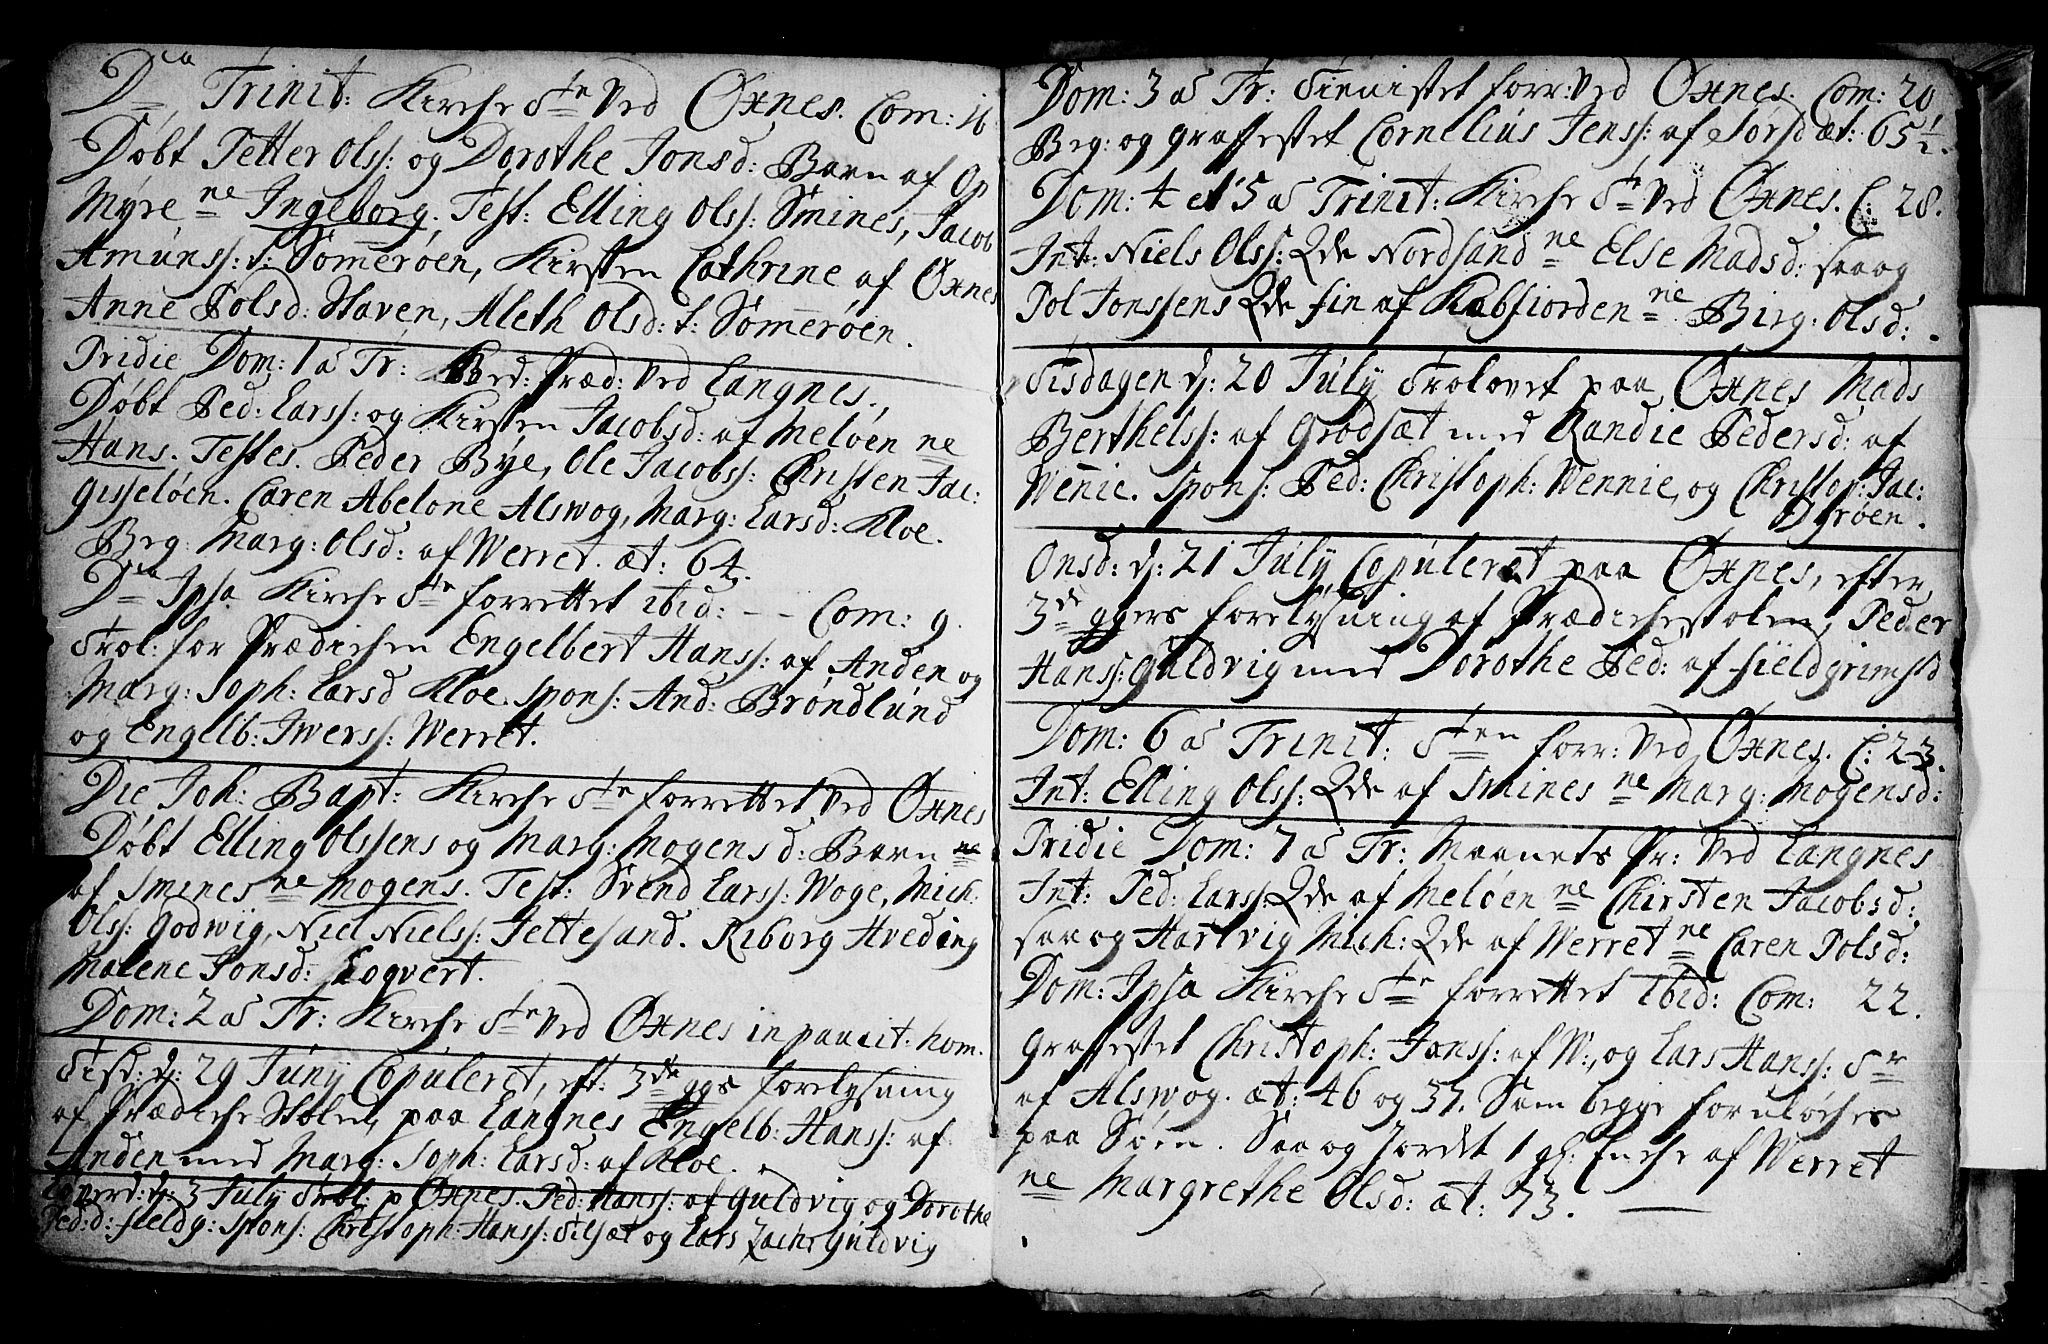 Dca Trinit: Kirche Ste Ved Øxnes. Com: 16
Døbt Petter Olss: og Dorothe Jonsd: Barn af Op
Myre ne Ingeborg. Test: Elling Olss: Smines, Jacob
Amunss: f: Sømmerøen, Kirsten Cathrine af Øxnes
Anne Polsd: Staven, Aleth Olsd: f: Sømmerøen.
Pridie Dom: 1 a Tr: Bed: Præd: Ved Langnes.
Døbt Ped: Larss: og Kirsten Jacobsd: af Meløen ne
Hans. Testes. Peder Bye, Ole Jacobss: Christen Jac:
Gisseløen. Caren Abelone Alswog, Marg: Larsd: Kloe.
Beg: Marg: Olsd: af Werret. æt: 64.
Dca Ipsa Kirche Ste forrettet ibid: - - Com: 9.
Trol: for Prædichen Engelbert Hanss: af Anden og
Marg: Soph: Larsd Kloe. Spons: And: Brøndlund
og Engelb: Iwerss: Werret.
Die Joh: Bapt: Kirche Ste forrettet Ved Øxnes
Døbt Elling Olssens og Marg: Mogensd: Barn
af Smines ne Mogens. Test: Svend Larss: Woge, Mich:
Olss: Godwiig, Niel Nielss: Tettesand. Riborg Hveding
Malene Jonsd: Logvert.
Dom: 2 a Tr: Kirche Ste Ved Øxnes in paucit. hom.
Tisd: d: 29 Junij Copuleret, eft: 3de ggs forelysning
af Prædiche Stolen, paa Langnes Engelb: Hanss: af
Anden med Marg: Soph: Larsd: af Kloe.
d: 3 July Trol: p Øxnes. Ped: Hanss: af Guldvig og Dorothe
Ped:d: fieldg: Spons: Christoph: Hanss: Tilsæt og Lars Zachr Guldvig
Dom: 3 a Tr: Tienistet forr: Ved Øxnes. Com: 20
Beg: og graffestet Cornelius Jenss: af Sørsd æt: 65 1/2.
Dom: 4 et 5 a Trinit: Kirche Ste Ved Øxnes. C: 28.
Int: Niels Olss: Qde Nordsand ne Else Madsd: saa og
Pol Jonssens Qde fin af Kobfiorden ne Birg: Olsd:
Tisdagen d: 20 July Trolovet paa Øxnes Mads
Berthelss: af Grodsæt med Randie Pedersd: af
Wennie. Spons: Ped: Christoph: Wennie, og Christop: Jac:
Dyrøen.
Onsd: d: 21 July Copuleret paa Øxnes, efter
3de ggers forelysning af Prædichestolen, Peder
Hanss: Guldvig med Dorothe Ped: af fieldgrimsd
Dom: 6 a Trinit: Sten forr: Ved Øxnes. C: 23.
Int: Elling Olss: Qde af Smines ne Marg: Mogensd:
Pridie Dom: 7 a Tr: Maanets Pr: Ved Langnes
Int: Ped: Larss: Qde af Meløen ne Chirsten Jacobsd:
saa og Hartvig Mich: Qde af Werret ne Caren Polsd:
Dom: Ipsa Kirche Ste forrettet ibid: Com: 22.
Graffestet Christoph: Jonss: af W:, og Lars Hanss: Sr
af Alswog. æt: 46 og 37. Som begge foruløches
paa Søen. Saa og Jordet 1 gl: Enche af Werret
ne Margrethe Olsd: æt: 73.